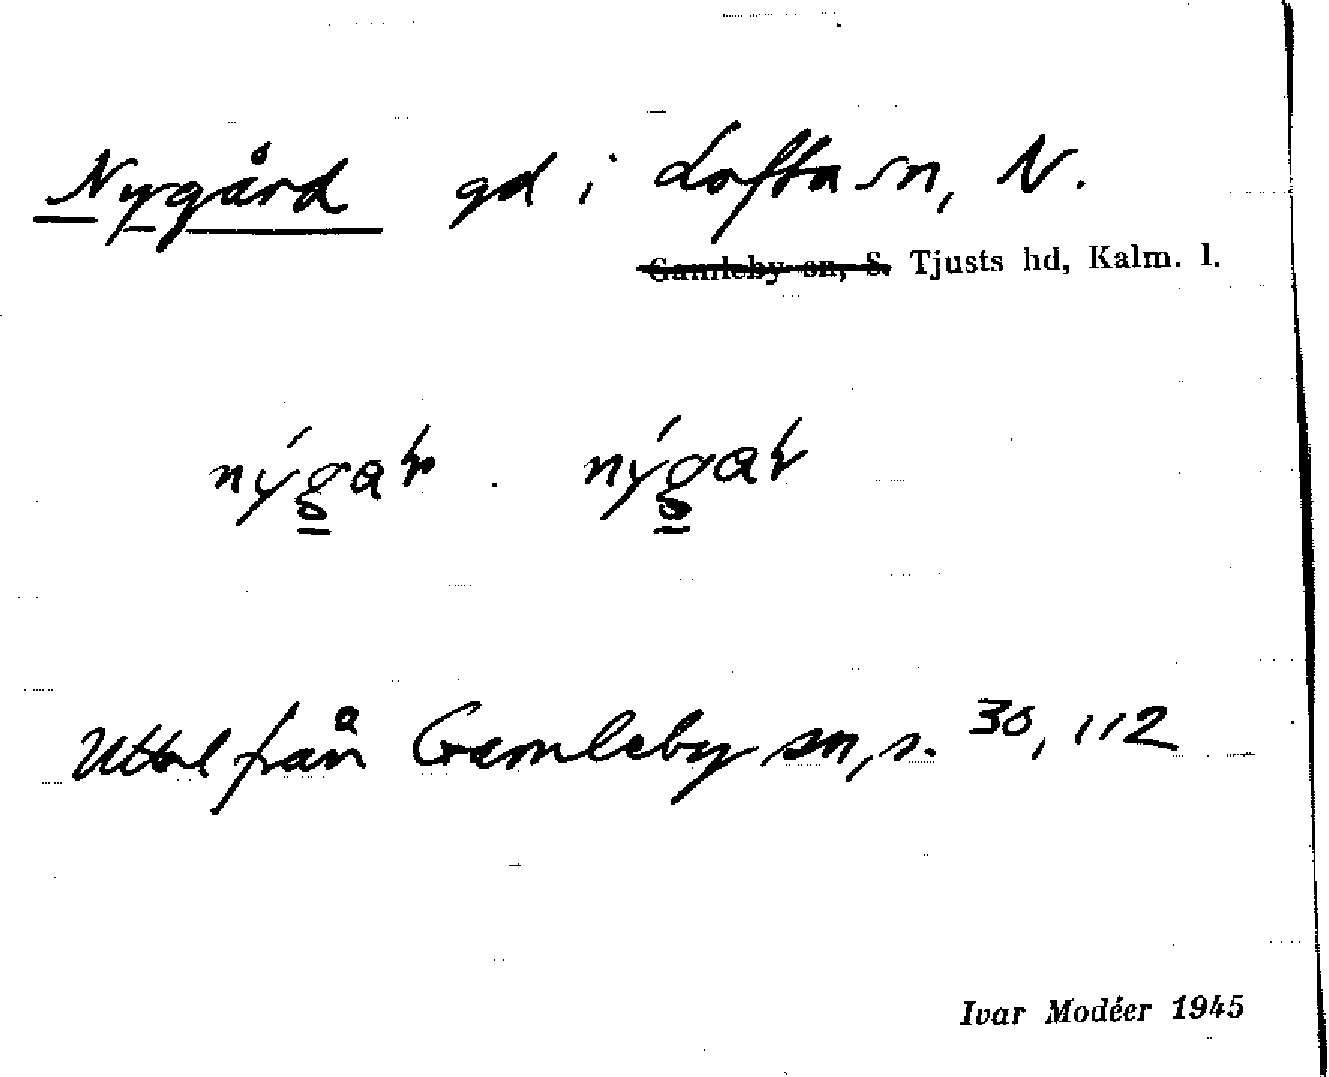 Nygård gd i Lofta sn, N.
Gamleby sn, S. Tjusts hd, Kalm. l.
nýgar . nýgar
Uttal från Gamleby sn, s. 30, 112
Ivar Modéer 1945